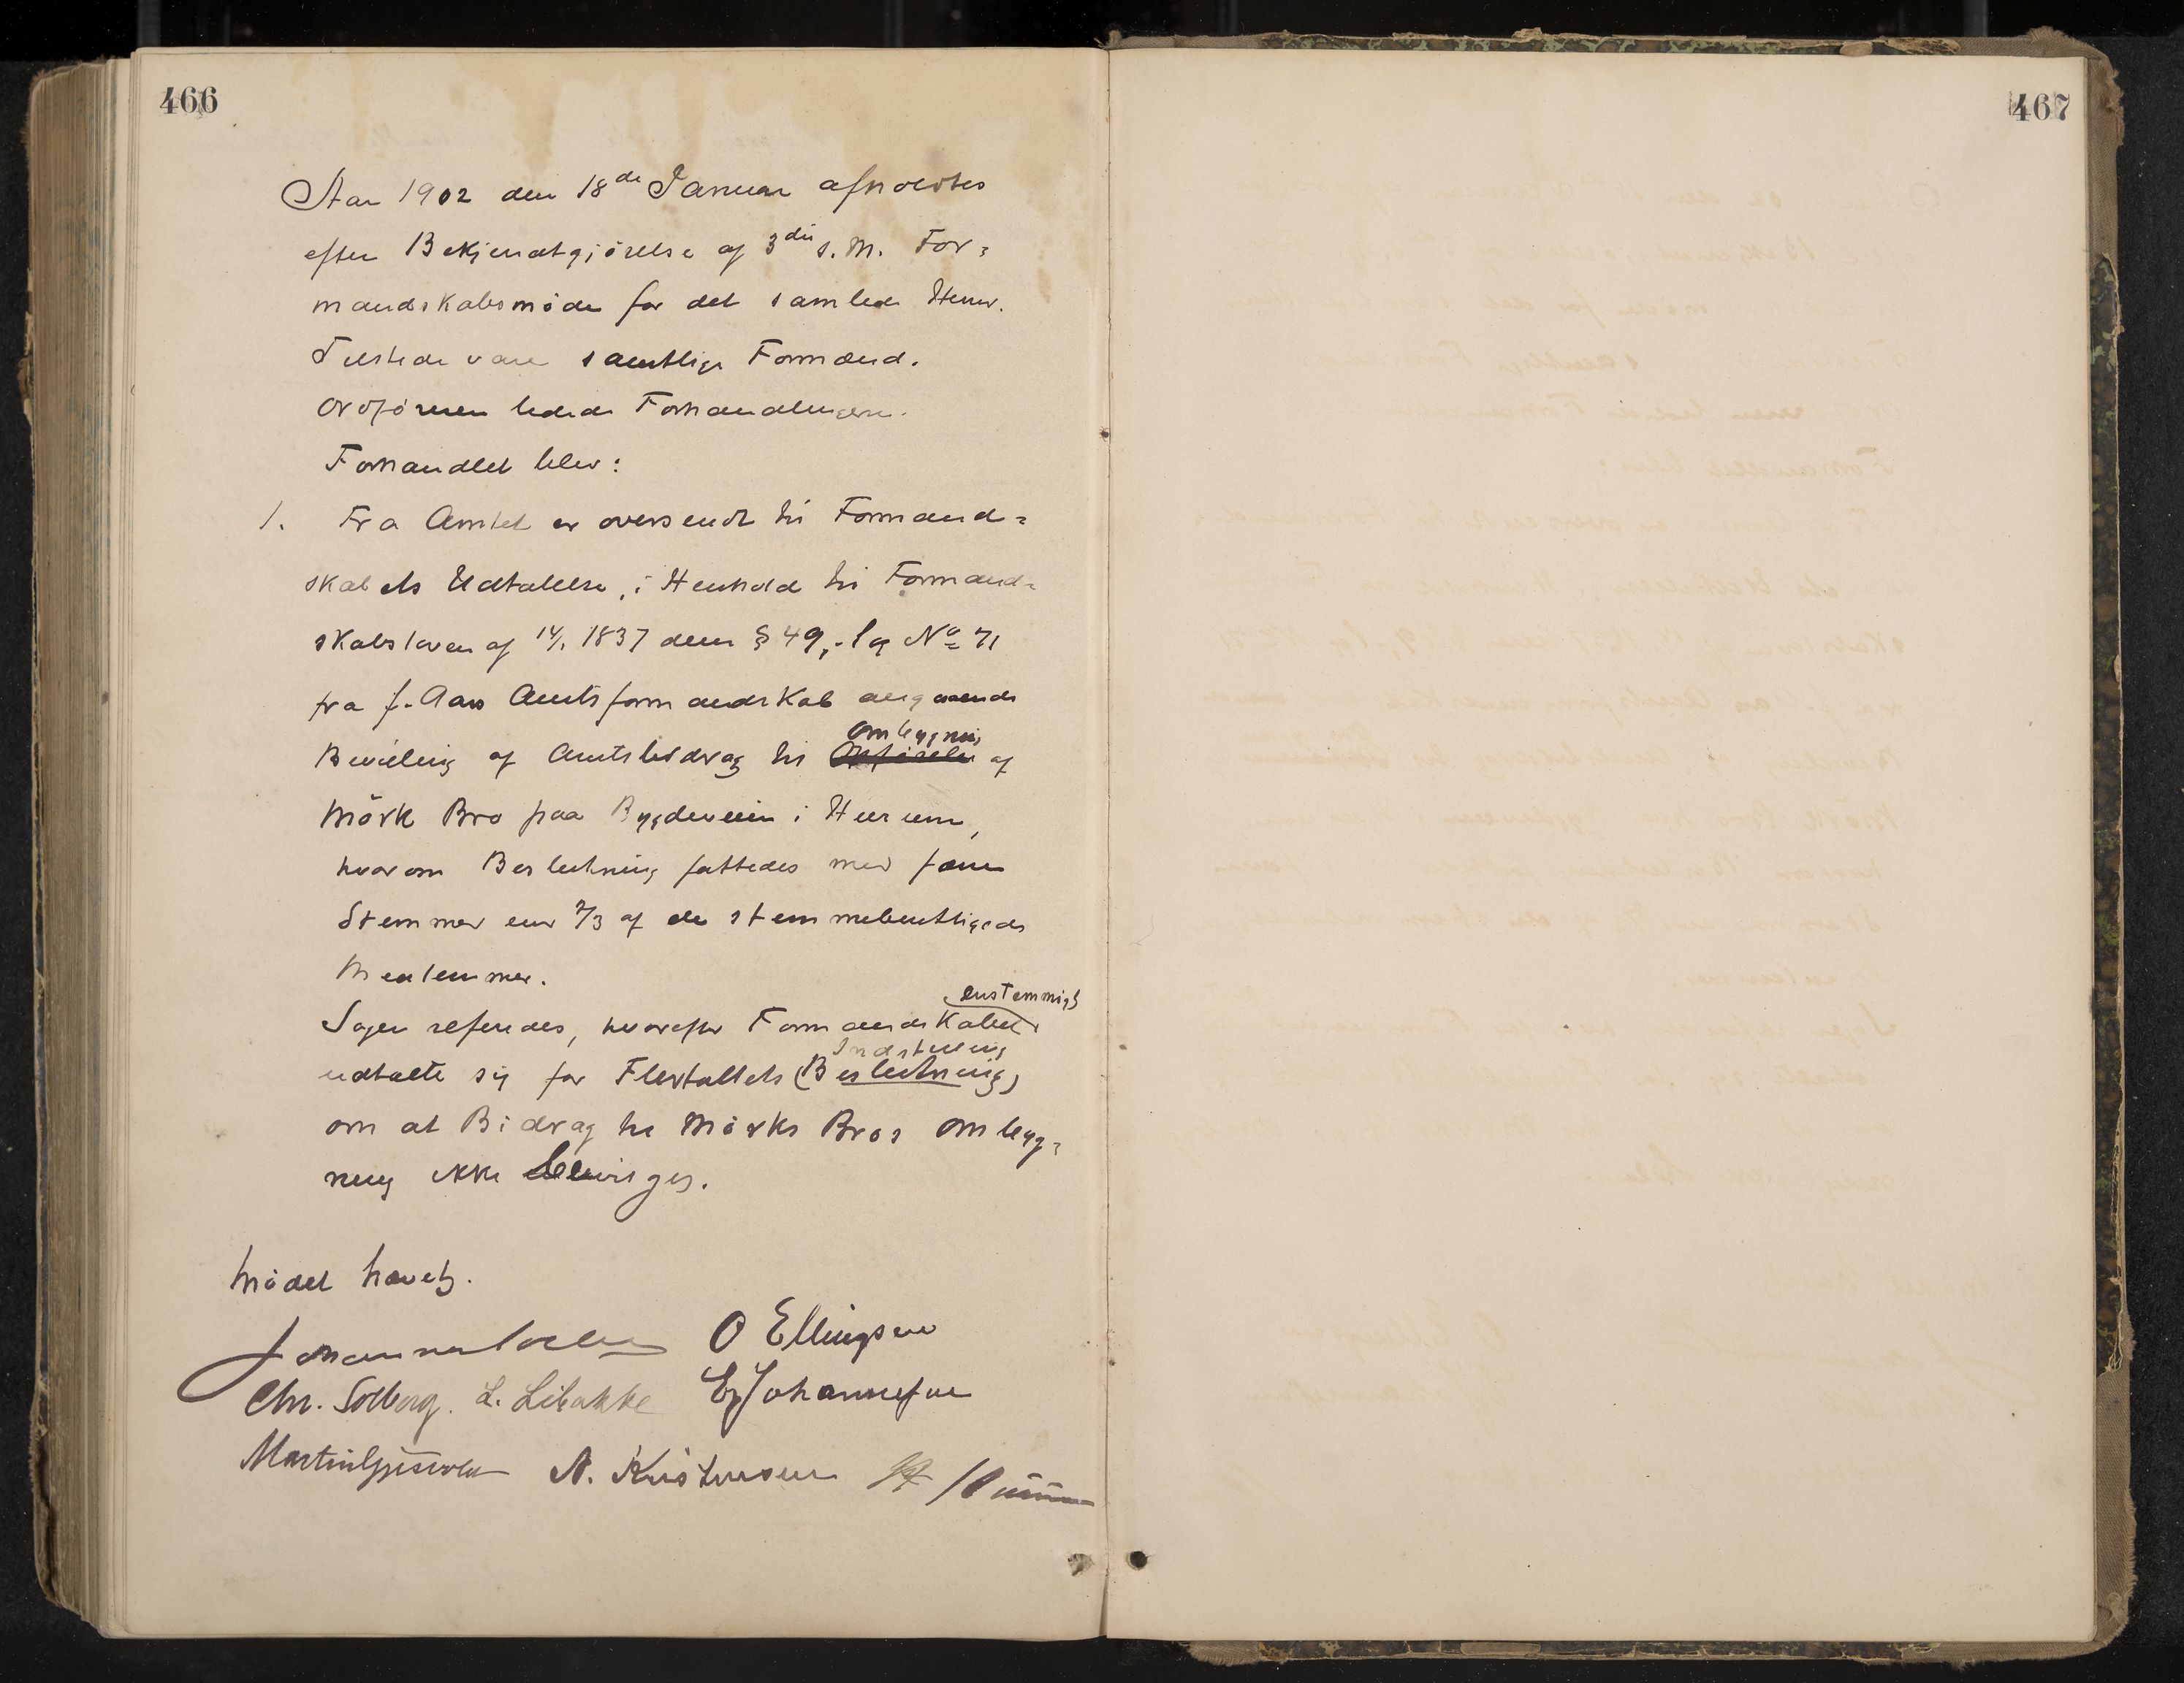 466
467
Aar 1902 den 18de Januar afholdtes
efter Bekjendtgjörelse af 3die s. M. For=
mandskabsmöde for det samlede Herred.
Tilstede vare samtlige Formænd.
Ordföreren ledede Forhandlingerne.
Forhandlet blev:
1. Fra Amtet er oversendt til Formand=
skabets Udtalelse, i Henhold til Formand=
skabsloven af 14/1 1837 dens § 49, Sag No 71
fra f. Aars Amtsformandskab angaaende
Omlægning
Bevilling af Amtsbidrag til Opförelse af
Mörk Bro paa Bygdeveien i Hurum,
hvorom Beslutning fattedes med færre
Stemmer end 2/3 af de stemmeberettigede
Medlemmer.
enstemmigt
Sagen refereredes, hvorefter Formandskabet
Indstilling
udtalte sig for Flertallets (Beslutning)
om at Bidrag til Mörks Bros Omlæg=
ning ikke bevilges.
Mödet hævet.
O Ellingsen
Chr. Solberg. L. Libakke E Johannesen
Martin A. Kristensen